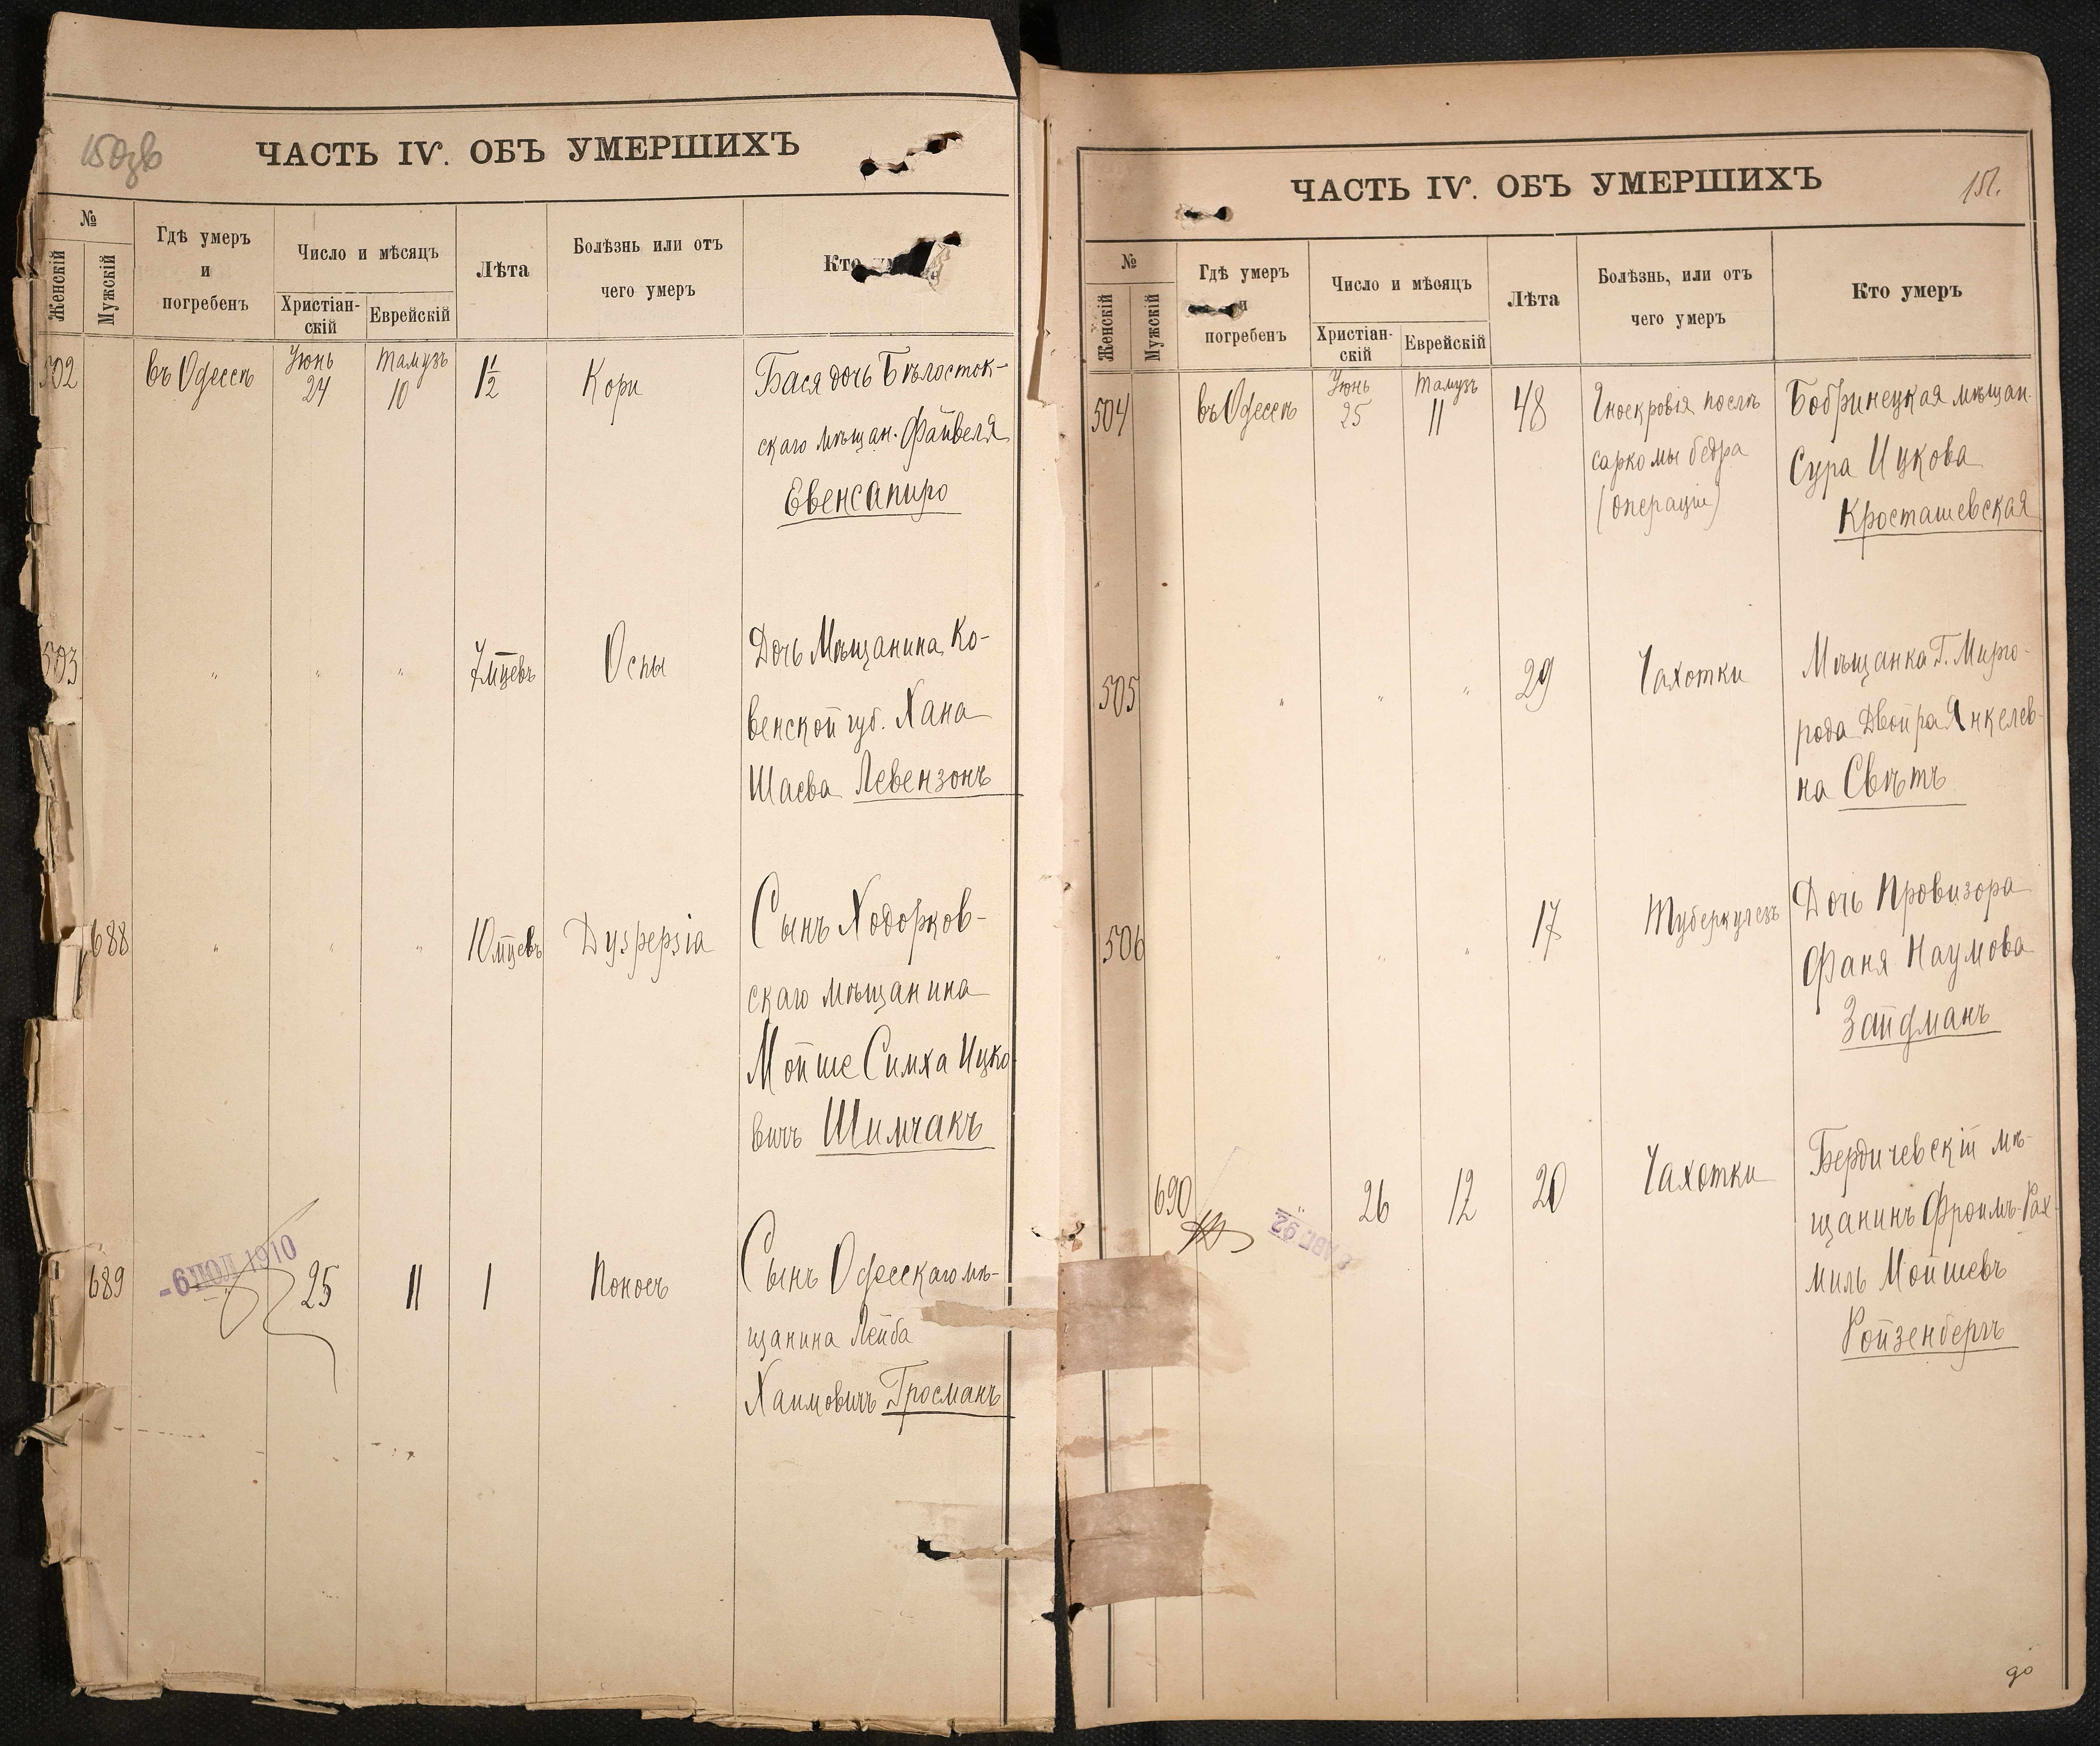 150зв
ЧАСТЬ IV. ОБЪ УМЕРШИХЪ
№
Женскій
Мужскій
Гдѣ умеръ
и
погребенъ
Число и мѣсяцъ
Христіан-
скій
Еврейскій
Лѣта
Болѣзнь или отъ
чего умеръ
Кто
502
въ Одессѣ
Іюнь
24
Тамузъ
10
1½
Кори
Бася дочь Бѣлосток-
скаго мѣщан. Файвеля
Евенсапиро
503
"
"
"
7 мцевъ
Оспы
Дочь Мѣщанина Ко-
венской губ. Хана
Шаева Левензонъ
688
"
"
"
10 мцевъ
Dyspepsia
Сынъ Ходорков-
скаго мѣщанина
Мойше Симха Ицко
вичъ Шимчакъ
689
-6 ІЮЛ 1910
25
11
1
Поносъ
Сынъ Одесскаго мѣ-
щанина Лейба
Хаимовичъ Гросманъ
ЧАСТЬ IV. ОБЪ УМЕРШИХЪ
151.
№
Женскій
Мужскій
Гдѣ умеръ
и
погребенъ
Число и мѣсяцъ
Христіан-
скій
Еврейскій
Лѣта
Болѣзнь, или отъ
чего умеръ
Кто умеръ
504
въ Одессѣ
Іюнь
25
Тамузъ
11
48
Гноекровія послѣ
саркомы бедра
(операціи)
Бобринецкая мѣщан.
Сура Ицкова
Кросташевская
505
"
"
"
29
Чахотки
Мѣщанка Г. Мирго-
рода Двойра Янкелев-
на Свѣтъ
506
"
"
"
17
Туберкулезъ
Дочь Провизора
Фаня Наумова
Зайдманъ
690
АВГ. 92
26
12
20
Чахотки
Бердичевскій мѣ-
щанинъ Фроимъ-Рах-
миль Мойшевъ
Ройзенбергъ